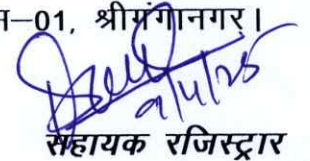 –01, श्रीगंगानगर।
9/4/25
सहायक रजिस्ट्रार